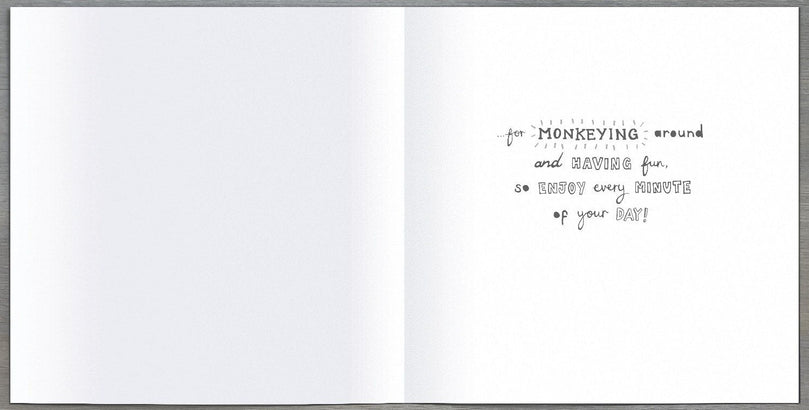 ...for MONKEYING around
and HAVING fun,
so ENJOY every MINUTE
of your DAY!